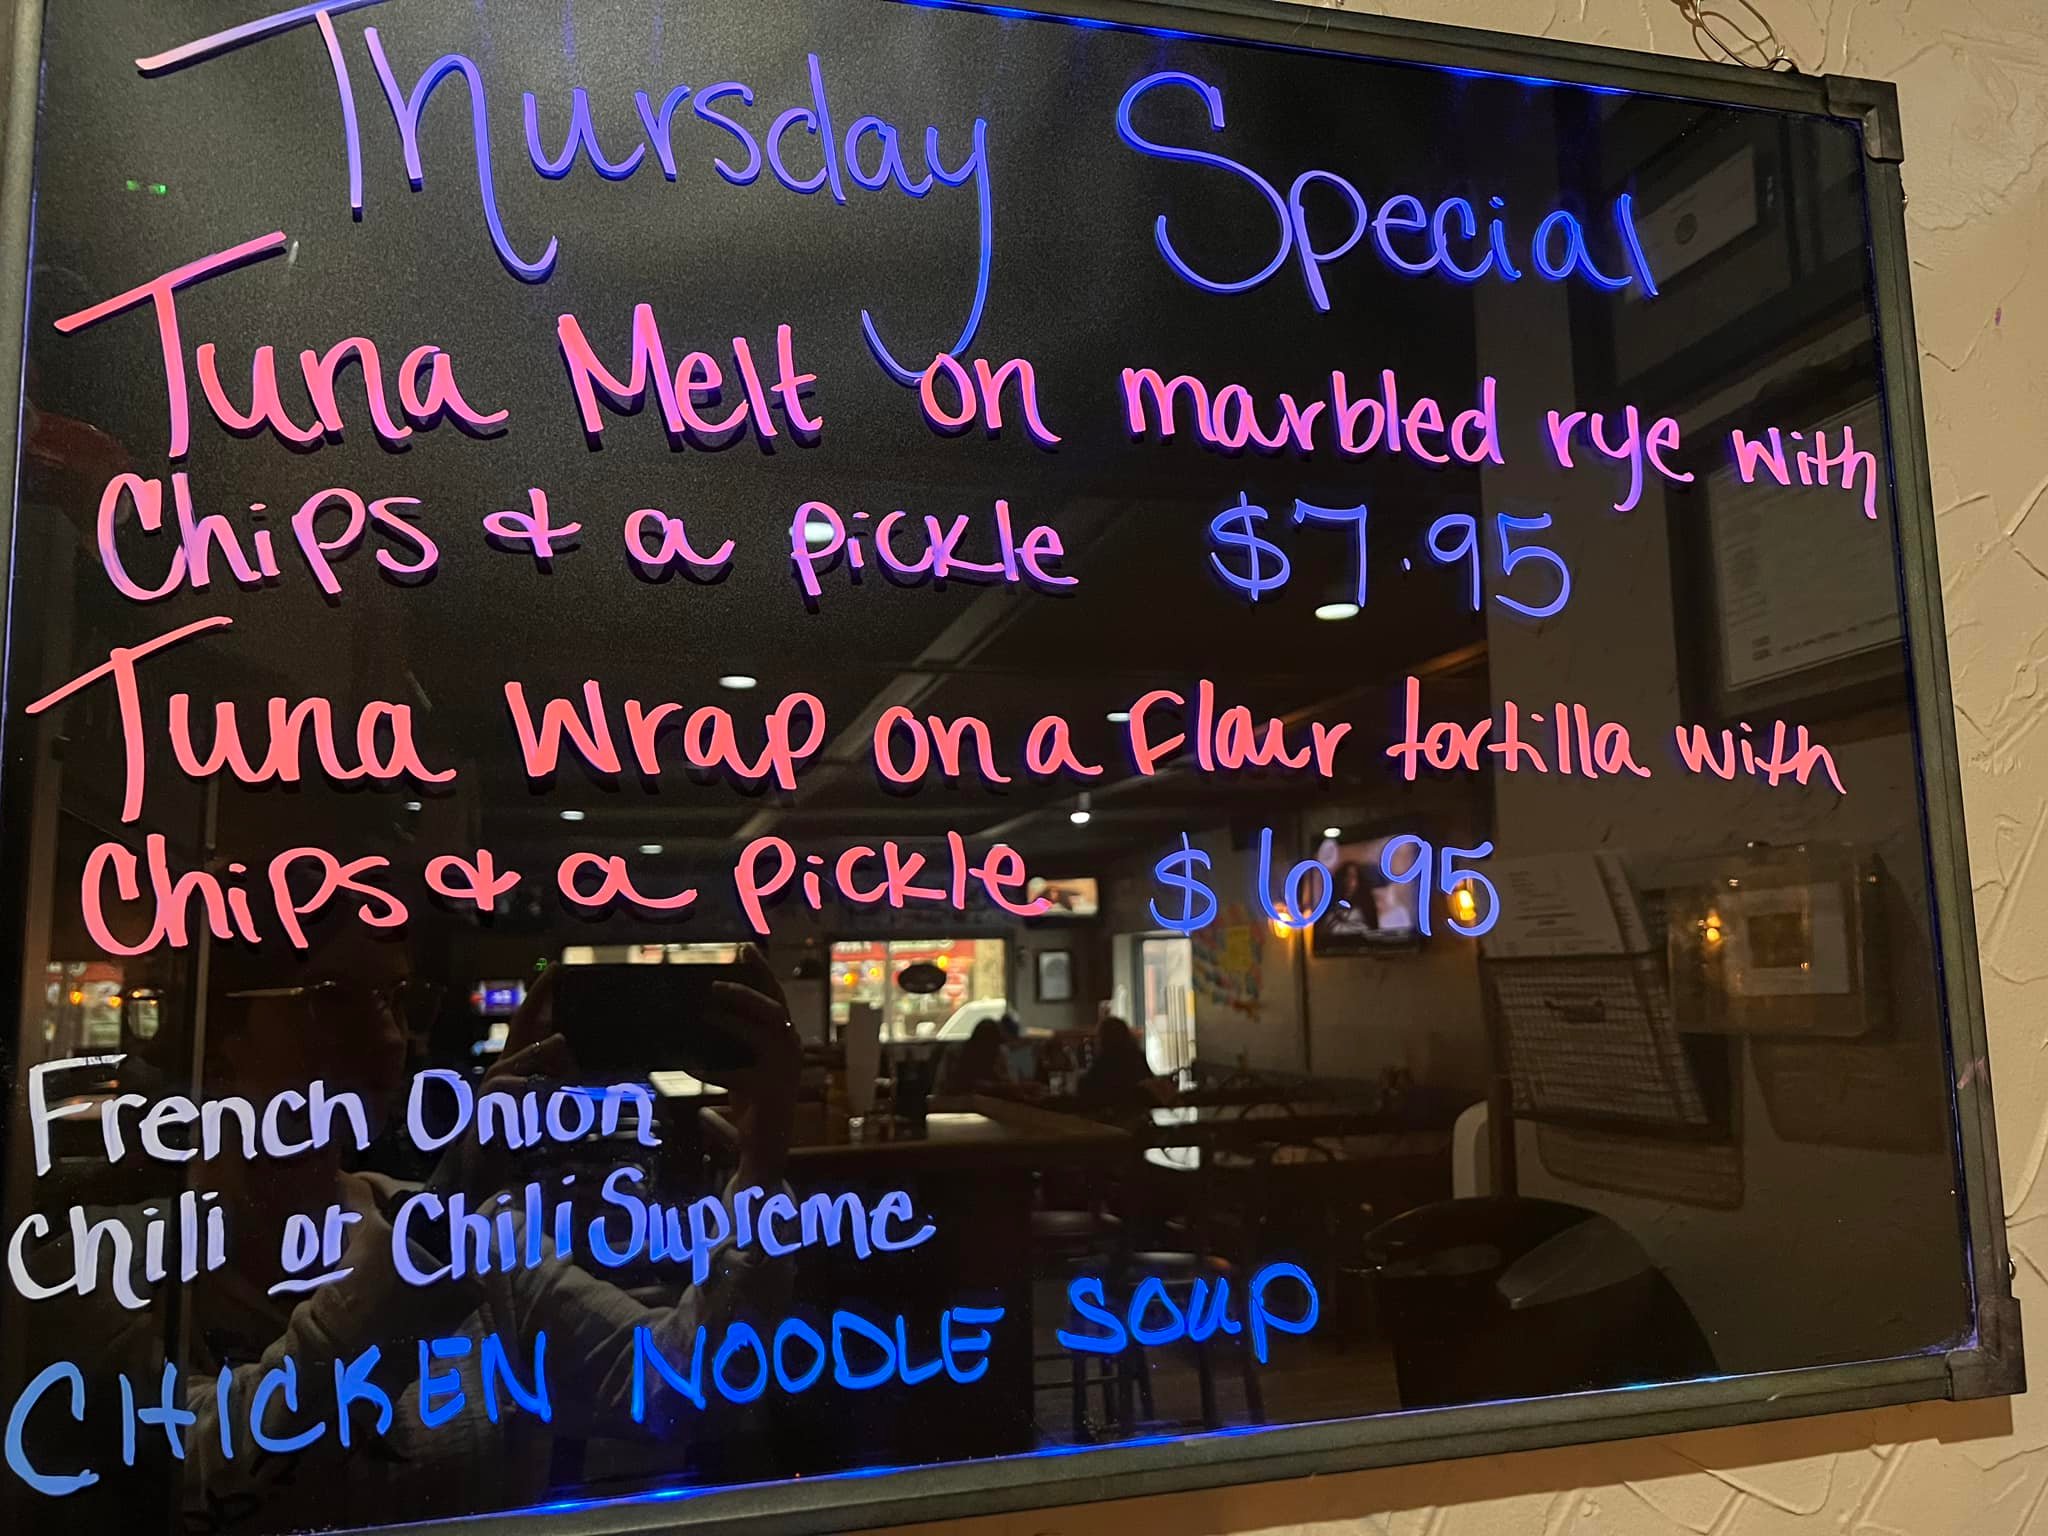 Thursday Special
Tuna Melt on marbled rye with
Chips & a pickle $7.95
Tuna Wrap on a Flour tortilla with
Chips & a pickle $6.95
French Onion
Chili or Chili Supreme
CHICKEN NOODLE SOUP